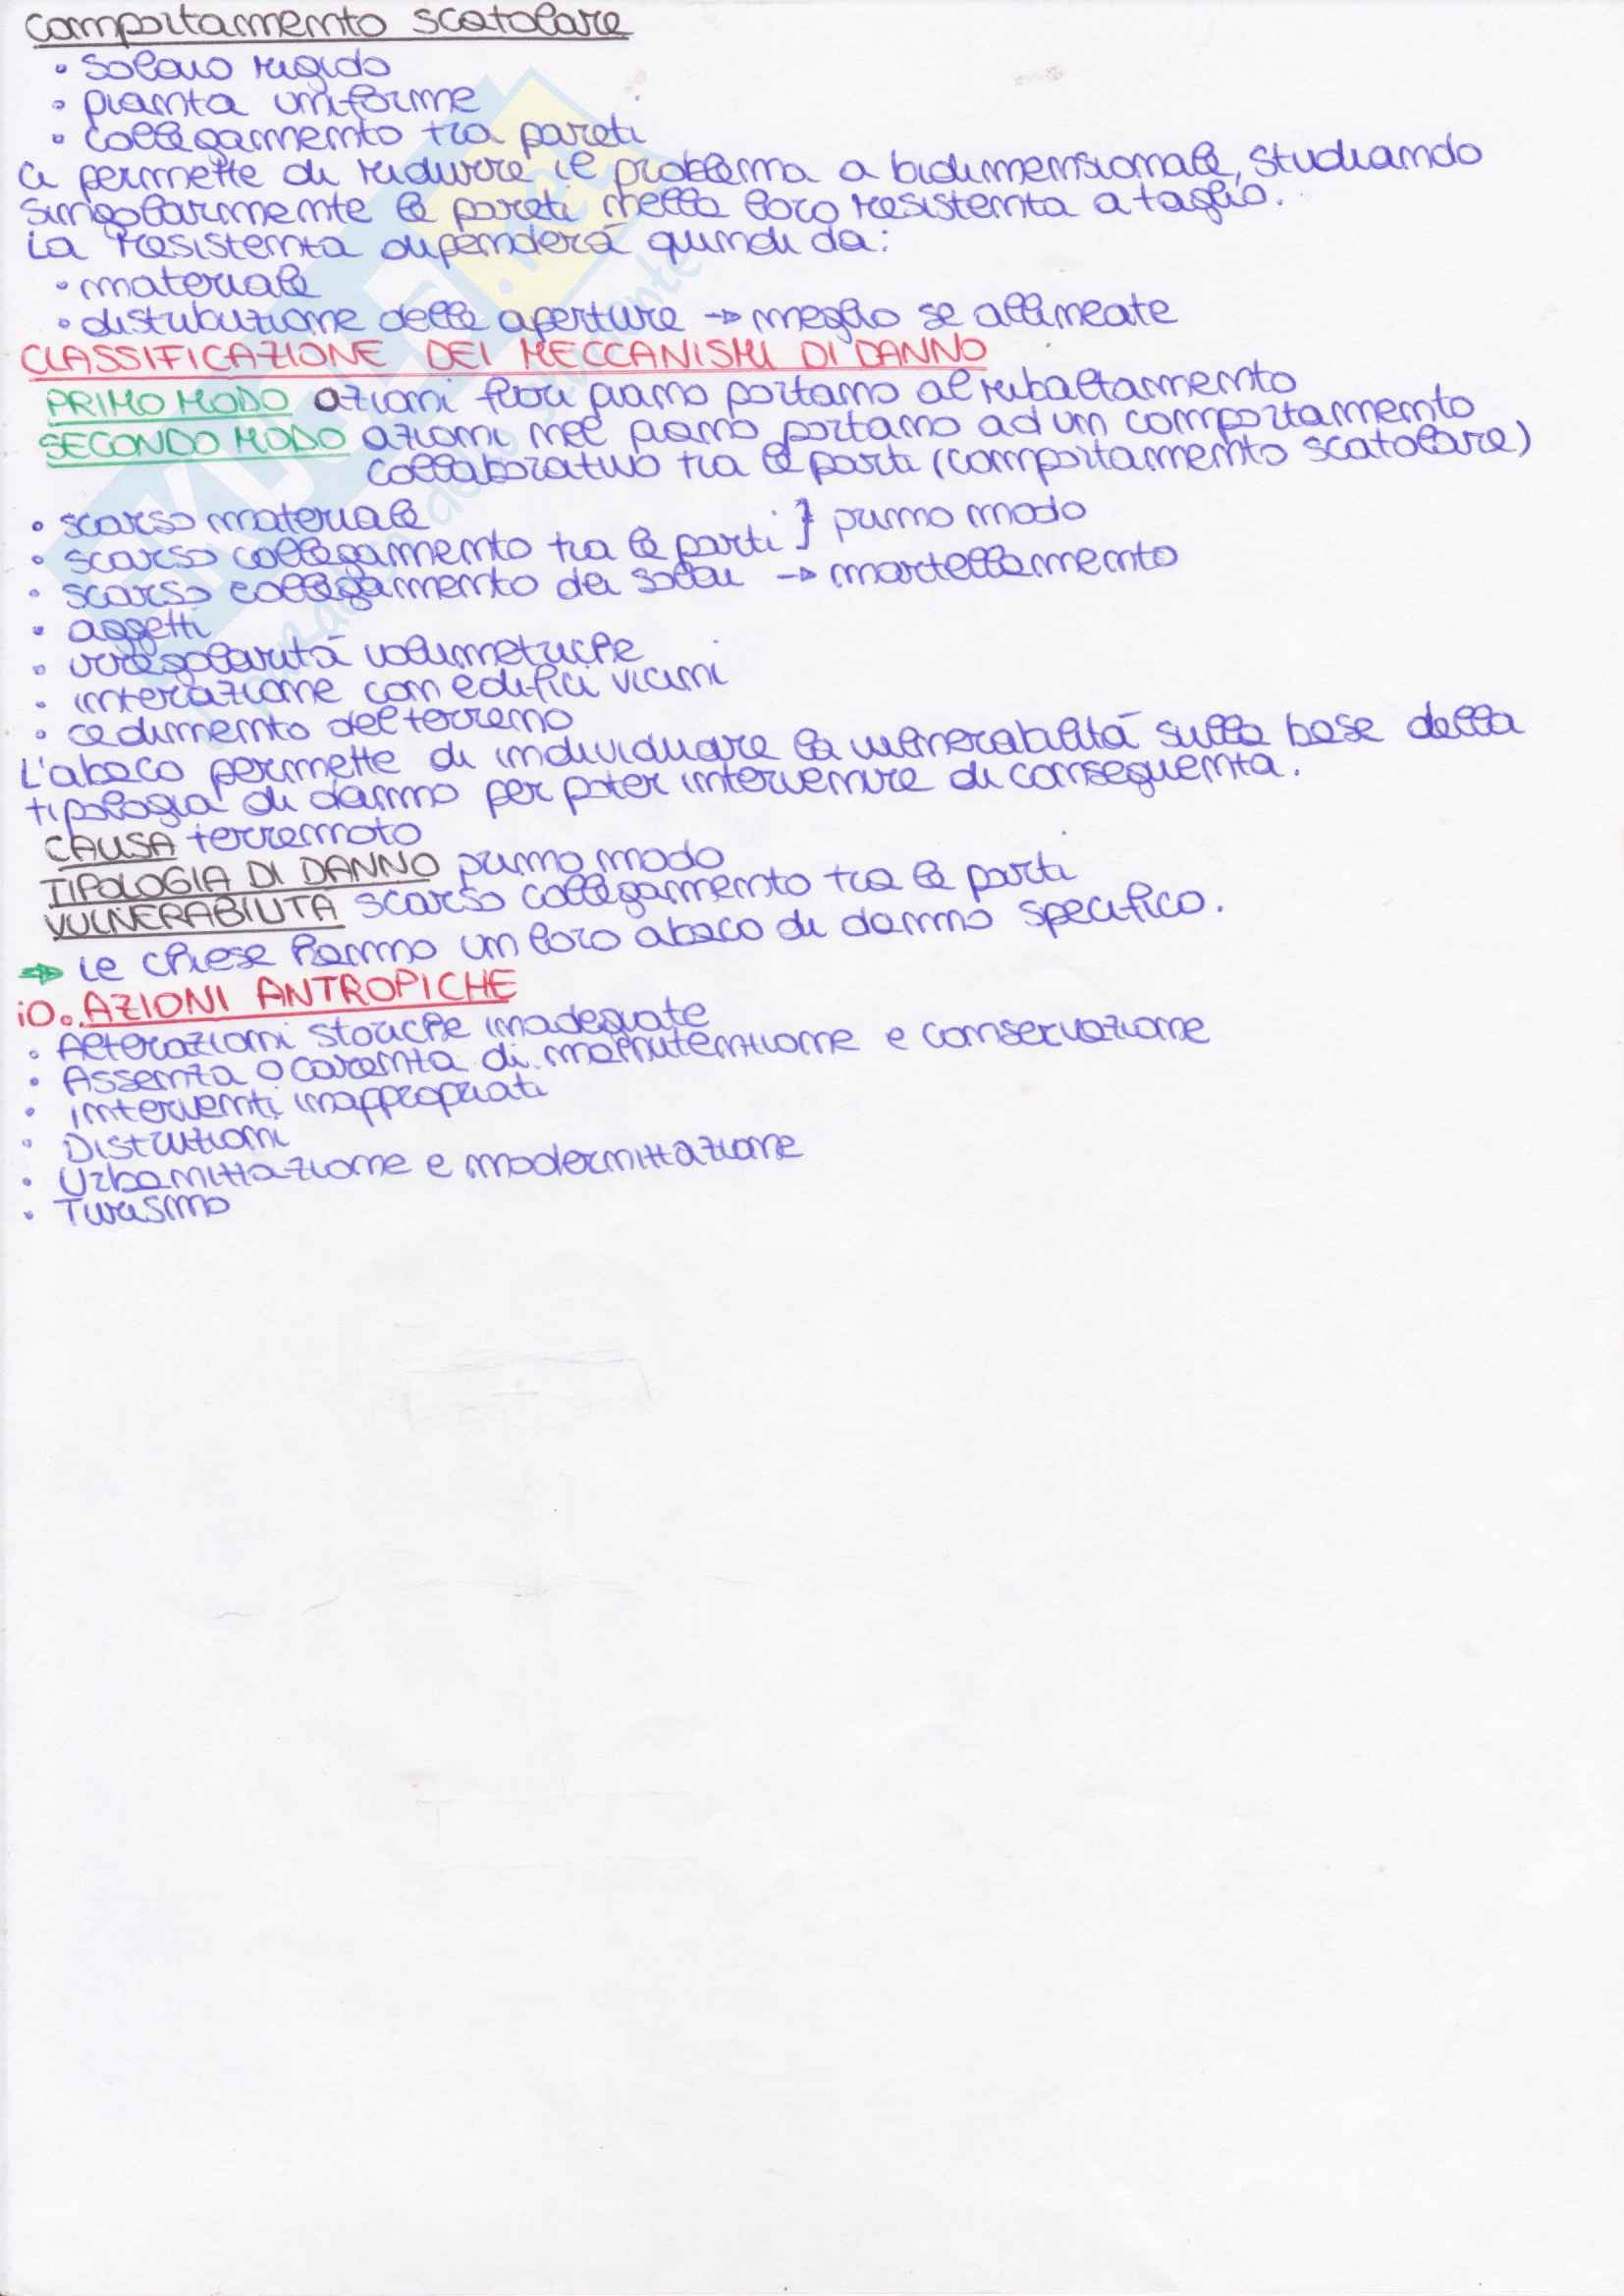 comportamento scatolare
• solaio rigido
• pianta uniforme
• collegamento tra pareti
ci permette di ridurre il problema a bidimensionale, studiando
singolarmente le pareti nella loro resistenza a taglio.
La resistenza dipenderà quindi da:
• materiale
• distribuzione delle aperture → meglio se allineate
CLASSIFICAZIONE DEI MECCANISMI DI DANNO
PRIMO MODO azioni fuori piano portano al ribaltamento
SECONDO MODO azioni nel piano portano ad un comportamento
collaborativo tra le parti (comportamento scatolare)
• scarso materiale
• scarso collegamento tra le parti } primo modo
• scarso collegamento dei solai → martellamento
• aggetti
• irregolarità volumetriche
• interazione con edifici vicini
• cedimento del terreno
L'abaco permette di individuare la vulnerabilità sulla base della
tipologia di danno per poter intervenire di conseguenza.
CAUSA terremoto
TIPOLOGIA DI DANNO primo modo
VULNERABILITÀ scarso collegamento tra le parti
→ Le chiese hanno un loro abaco di danno specifico.
10. AZIONI ANTROPICHE
• Alterazioni storiche inadeguate
• Assenza o carenza di manutenzione e conservazione
• interventi inappropriati
• Distruzioni
• Urbanizzazione e modernizzazione
• Turismo